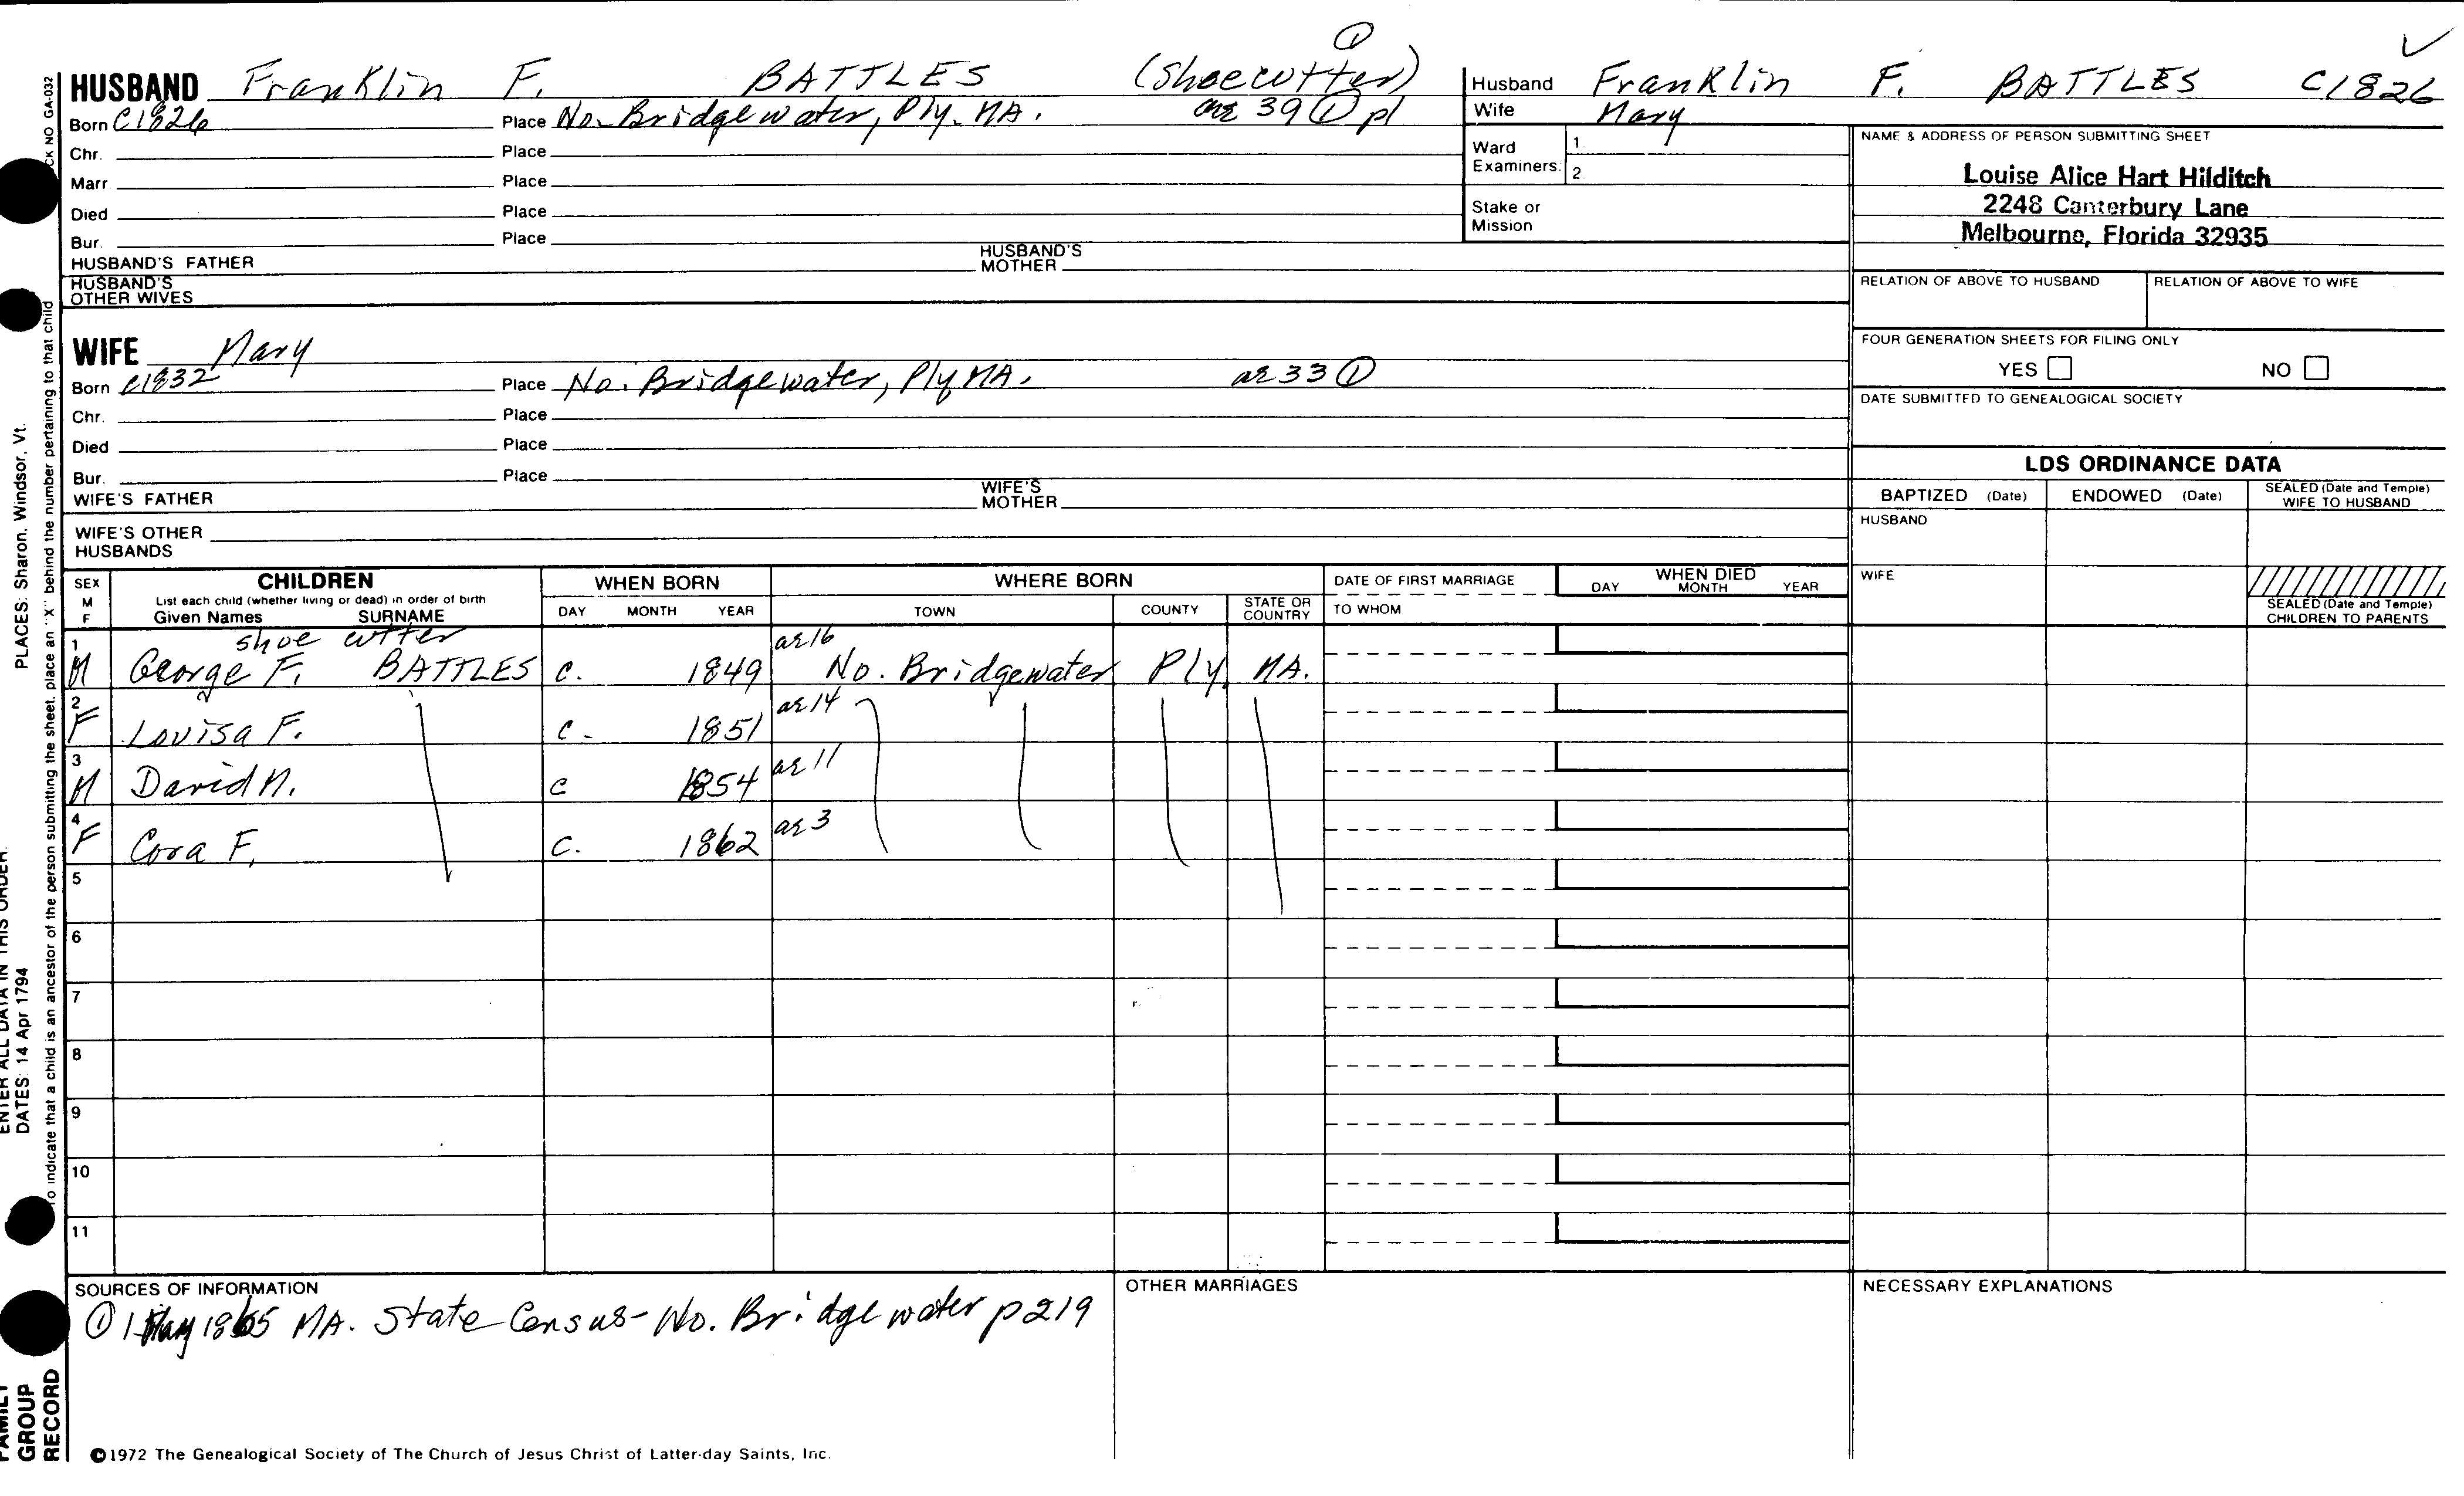 ①
HUSBAND Franklin F. BATTLES (Shoecutter)
Born C1826 Place No. Bridgewater, Ply. MA. ae 39 ① pl
Chr. Place
Marr. Place
Died Place
Bur. Place
HUSBAND'S FATHER HUSBAND'S MOTHER
HUSBAND'S OTHER WIVES
Husband Franklin F. BATTLES C1826
Wife Mary
Ward Examiners 1. 2.
Stake or Mission
NAME & ADDRESS OF PERSON SUBMITTING SHEET
Louise Alice Hart Hilditch
2248 Canterbury Lane
Melbourne, Florida 32935
RELATION OF ABOVE TO HUSBAND RELATION OF ABOVE TO WIFE
FOUR GENERATION SHEETS FOR FILING ONLY
YES NO
DATE SUBMITTED TO GENEALOGICAL SOCIETY
WIFE Mary
Born C1832 Place No. Bridgewater, Ply MA. ae 33 ①
Chr. Place
Died Place
Bur. Place
WIFE'S FATHER WIFE'S MOTHER
WIFE'S OTHER HUSBANDS
LDS ORDINANCE DATA
BAPTIZED (Date) ENDOWED (Date) SEALED (Date and Temple) WIFE TO HUSBAND
HUSBAND
WIFE
SEALED (Date and Temple) CHILDREN TO PARENTS
SEX M F CHILDREN WHEN BORN WHERE BORN DATE OF FIRST MARRIAGE WHEN DIED
List each child (whether living or dead) in order of birth
Given Names SURNAME DAY MONTH YEAR TOWN COUNTY STATE OR COUNTRY TO WHOM DAY MONTH YEAR
shoe cutter
1 M George F. BATTLES C. 1849 ae 16 No. Bridgewater Ply. MA.
2 F Louisa F. C. 1851 ae 14
3 M David M. C 1854 ae 11
4 F Cora F. C. 1862 ae 3
5
6
7
8
9
10
11
SOURCES OF INFORMATION
① 1 May 1865 MA. State Census - No. Bridgewater p 219
OTHER MARRIAGES
NECESSARY EXPLANATIONS
©1972 The Genealogical Society of The Church of Jesus Christ of Latter-day Saints, Inc.
CK NO GA-032
To indicate that a child is an ancestor of the person submitting the sheet, place an "X" behind the number pertaining to that child
PLACES: Sharon, Windsor, Vt.
ENTER ALL DATA IN THIS ORDER:
DATES: 14 Apr 1794
FAMILY GROUP RECORD